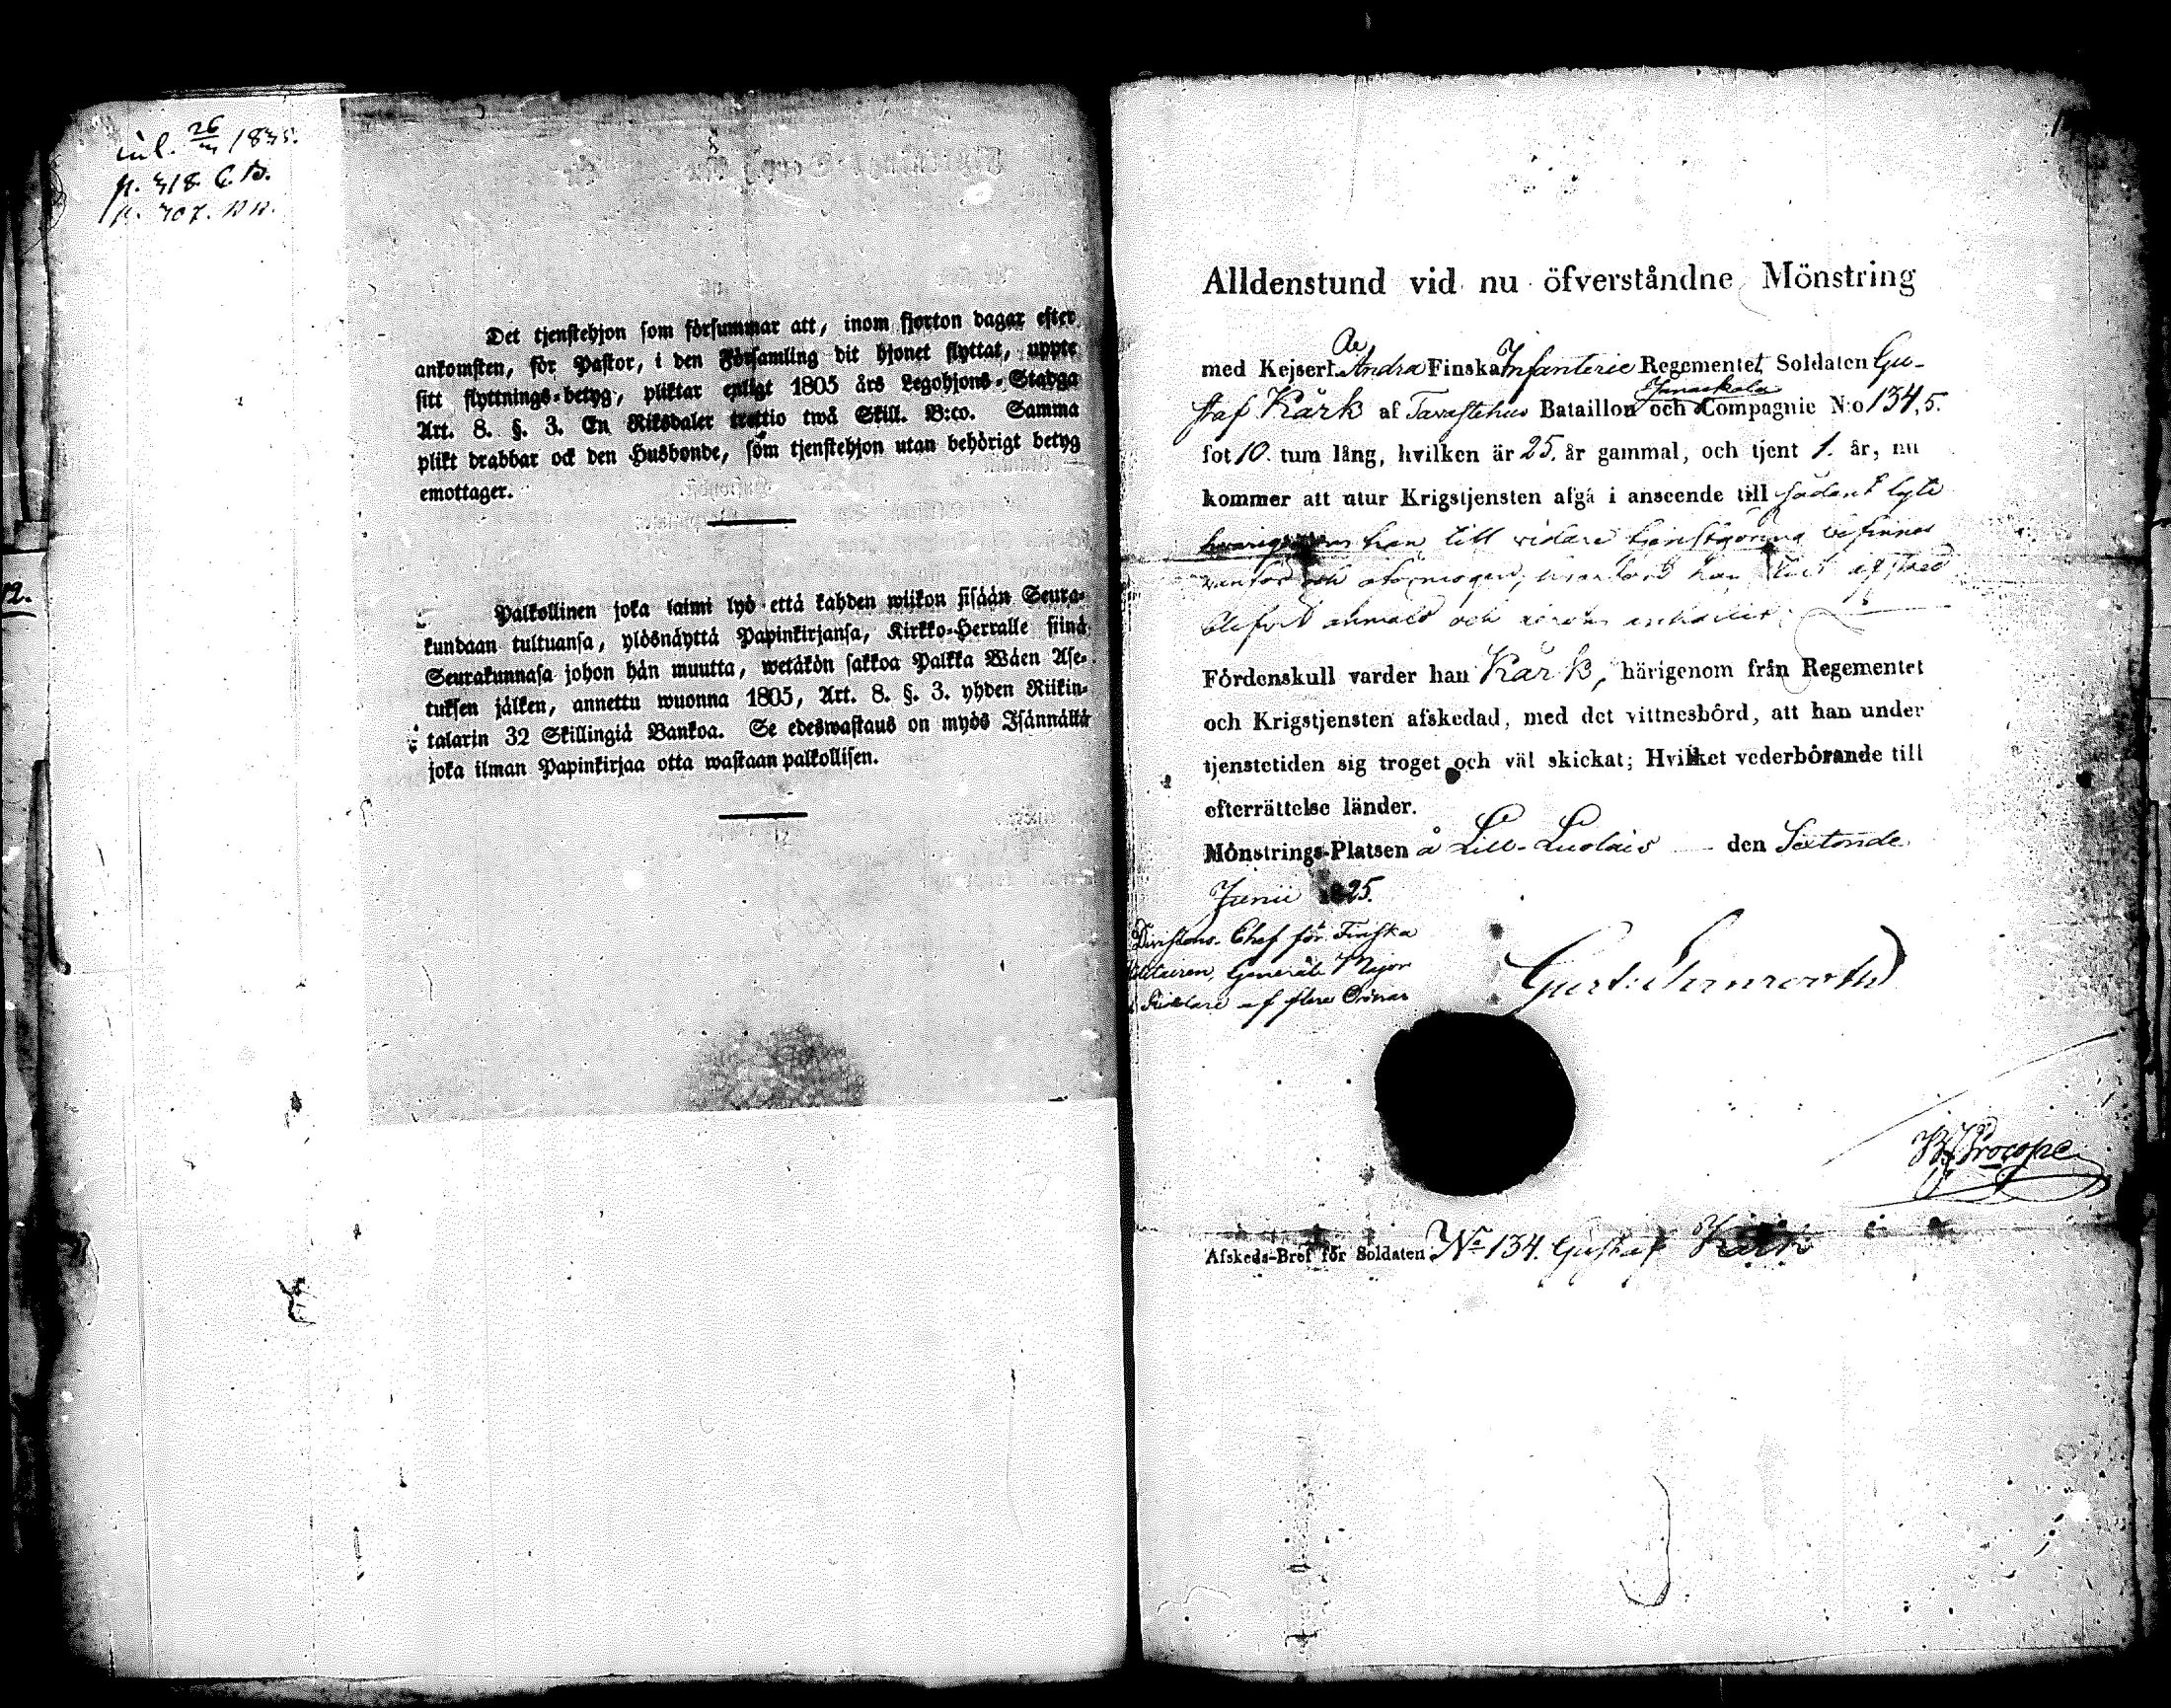 inl. 26/3 1835.
p. 318 C.B.
p. 707.
12.
Det tjenstehjon som försummar att, inom fjorton dagar efter
ankomsten, för Pastor, i den Församling dit hjonet flyttat, uppte
sitt flyttnings-betyg, pliktar enligt 1805 års Legohjons-Stadga
Art. 8. §. 3. En Riksdaler trettio twå Skill. B:co. Samma
plikt drabbar ock den Husbonde, som tjenstehjon utan behörigt betyg
emottager.
Palkollinen joka laimi lyö että kahden wiikon sisään Seura-
kundaan tultuansa, ylösnäyttä Papinkirjansa, Kirkko-Herralle siinä
Seurakunnasa johon hän muutta, wetäkön sakkoa Palkka Wäen Ase-
tuksen jälken, annettu wuonna 1805, Art. 8. §. 3. yhden Riikin-
talarin 32 Skillingiä Bankoa. Se edeswastaus on myös Isännällä
joka ilman Papinkirjaa otta wastaan palkollisen.
Alldenstund vid nu öfverståndne Mönstring
med Kejserl. Andra Finska Infanterie Regementet Soldaten Gu-
staf Kärk af Tavastehus Bataillon och Janakkala Compagnie N:o 134, 5.
fot 10. tum lång, hvilken är 25. år gammal, och tjent 1. år, nu
kommer att utur Krigstjensten afgå i anseende till sådant lyte
hvarigenom han till vidare tjenstgöring befinnes
och oförmögen, han afsked
blifvit anmäld och
Fördenskull varder han Kärk, härigenom från Regementet
och Krigstjensten afskedad, med det vittnesbörd, att han under
tjenstetiden sig troget och väl skickat; Hvilket vederbörande till
efterrättelse länder.
Mönstrings-Platsen å Lill-Luolais den Sextonde
Junii 1825.
Divisions-Chef för Finska
Militairen, General Major
Riddare af flere Ordnar
Gust: Ehrnrooth
Procope
Afskeds-Bref för Soldaten No 134. Gustaf Kärk